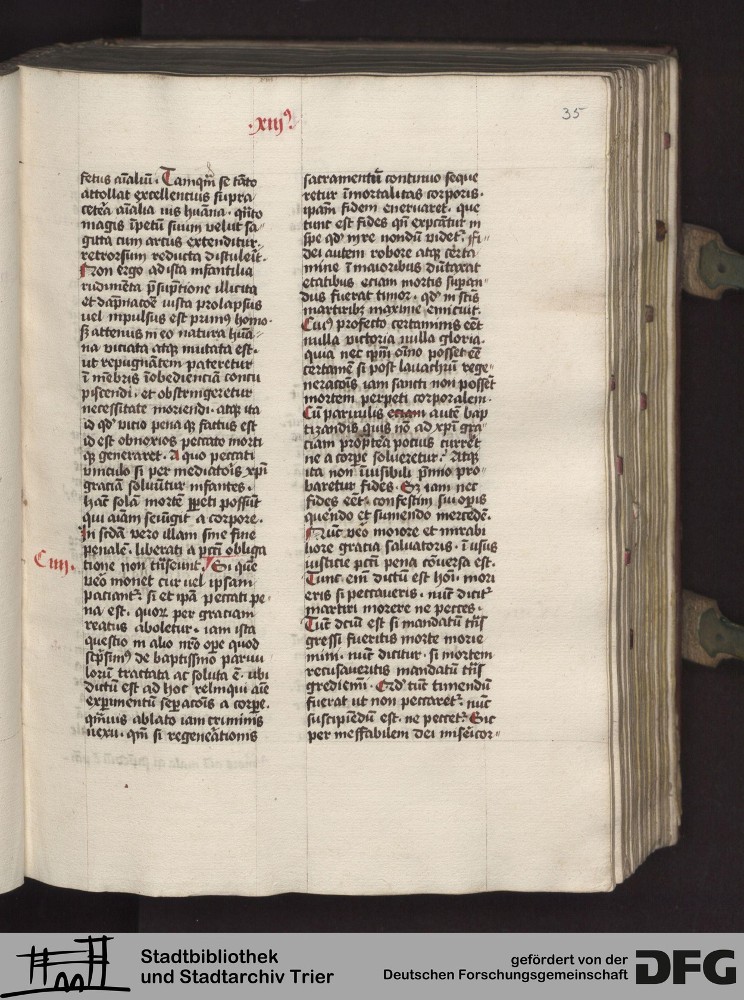 .xiij⁹.
35
fetus aīaliū. Tamqᷓ se tāto
attollat excellentius supra
cetᷓa aīalia uis huāna. qᷓto
magis īpetū suum velut sa-
gitta cum arcus extenditur.
retrorsum reducta distuleīt.
Non ergo ad ista infantilia
rudimēta p̄suptione illicita
et dāpnatōe iusta prolapsus
vel īmpulsus est prim⁹ homo.
sꝫ attenus in eo natura huā-
na viciata atqꝫ mutata est.
ut repugnātem pateretur
ī mēbris īobedienciā concu
piscendi. et obstringeretur
necessitate moriendi. atqꝫ ita
id qđ vitio pena qꝫ factus est
id est obnoxios peccato morti
qꝫ generaret. A quo peccati
vinculo si per mediatoīs xp̄i
graciā soluūtur infantes.
hāc solā mortē ꝑpeti possūt
qui aīam seiūgit a corpore.
In scđā vero illam sine fine
penalē. liberati a pctī obliga
C iiij.
tione non trāseunt. Si quē
veō mouet cur vel ipsam
paciant᷑. si et ip̄a peccati pe-
na est. quoꝝ per graciam
reatus aboletur. iam ista
questio in alio nr̄o ope quod
sc̄psim⁹ de baptismo paruu
lorū tractata ac soluta ē. ubi
dictū est ad hoc relinqui aīe
expimentū sepacōis a corꝑe.
qᷓuis ablato iam criminis
nexu. qm̄ si regeneᷓtionis
sacramentū continuo seque
retur īmortalitas corporis.
ipam fidem eneruaret. que
tunc est fides qn̄ expctāᷓtur in
spe qđ in re nondū videt᷑. Fi-
dei autem robore atqꝫ certa
mine ī maioribus dūtaxat
etatibus eciam mortis supan-
dus fuerat timor. qđ in sctīs
martiribꝫ maxime emicuit.
Cui⁹ profecto certaminis eēt
nulla victoria nulla gloria.
quia nec ip̄m oīno posset eē
certamē si post lauachrū rege-
neracōis iam sancti non possēt
mortem perpeti corporalem.
Cū paruulis eciam autē bap
tizandis quis nō ad xp̄i gra
ciam propterea potius currēt
ne a corpe solueretur. Atqꝫ
ita non īuisibili p̄mio pro-
baretur fides. Sꝫ iam nec
fides eēt. confestim sui opis
querēdo et sumendo mercedē.
Nūc veō maiore et mirabi
liore gratia saluatoris. ī usus
iusticie pctī pena cōuersa est.
Tunc eīm dictū est hōi. mori
eris si peccaueris. nūc dicit᷑
martiri morere ne pecces.
Tūc dc̄ū est si mandatū trāſ
gressi fueritis morte morie
mini. nūc dicitur. si mortem
recusaueritis mandatū trāſ
grediemī. Qđ tūc timendū
fuerat ut non peccaret᷑. nūc
suscipiēdū est. ne peccet᷑. Sic
per ineffabilem dei misericor-
Stadtbibliothek
und Stadtarchiv Trier
gefördert von der
Deutschen Forschungsgemeinschaft
DFG